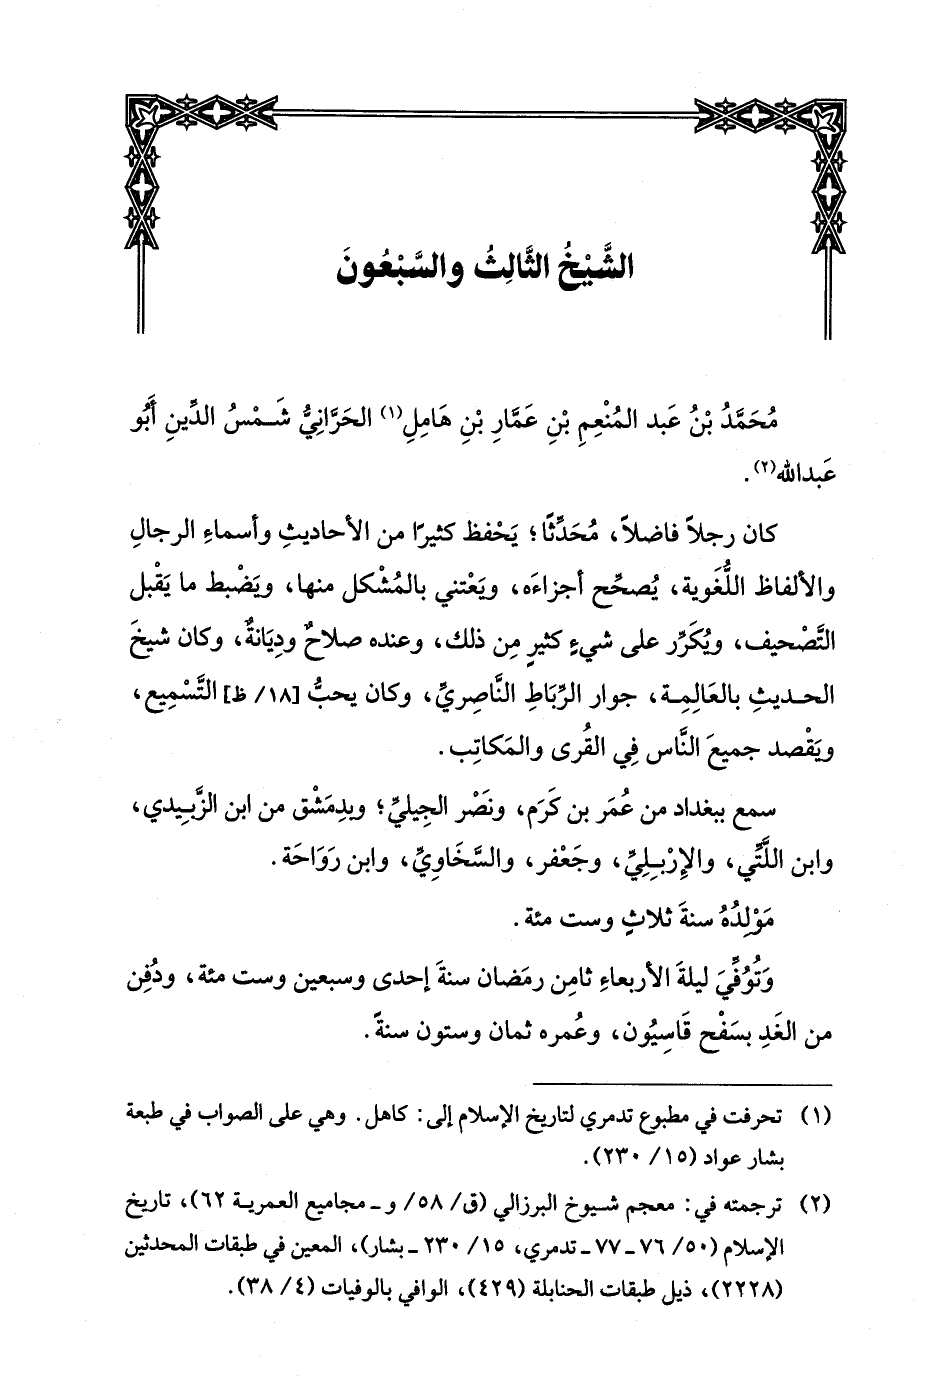 الشَّيْخُ الثَّالِثُ والسَّبْعُونَ
مُحَمَّدُ بْنُ عَبد المُنْعِمِ بْنِ عَمَّارِ بْنِ هَامِلٍ(١) الحَرَّانِيُّ شَمْسُ الدِّينِ أَبُو
عَبدالله(٢).
كان رجلاً فاضلاً، مُحَدِّثًا؛ يَحْفظ كثيرًا من الأحاديثِ وأسماءِ الرجالِ
والألفاظ اللُّغَوية، يُصحِّح أجزاءَه، ويَعْتني بالمُشْكل منها، ويَضْبط ما يَقْبل
التَّصْحيف، ويُكَرِّر على شيءٍ كثيرٍ مِن ذلك، وعنده صلاحٌ ودِيَانةٌ، وكان شيخَ
الحديثِ بالعَالِمِة، جوار الرِّبَاطِ النَّاصِريِّ، وكان يحبُّ [١٨/ ظ] التَّسْمِيع،
ويَقْصد جميعَ النَّاس فِي القُرى والمَكاتِب.
سمع ببغداد من عُمَر بن كَرَم، ونَصْر الجِيليِّ؛ وبدِمَشْق من ابن الزَّبِيدي،
وابن اللَّتِّي، والإِرْبِلِيِّ، وجَعْفر، والسَّخَاوِيِّ، وابن رَوَاحَة.
مَوْلِدُهُ سنةَ ثلاثٍ وست مئة.
وَتُوُفِّيَ ليلةَ الأربعاءِ ثامِن رمَضان سنةَ إحدى وسبعين وست مئة، ودُفِن
من الغَدِ بسَفْح قَاسِيُون، وعُمره ثمان وستون سنةً.
(١) تحرفت في مطبوع تدمري لتاريخ الإسلام إلى: كاهل. وهي على الصواب في طبعة
بشار عواد (١٥/ ٢٣٠).
(٢) ترجمته في: معجم شيوخ البرزالي (ق/ ٥٨/ و ـ مجاميع العمرية ٦٢)، تاريخ
الإسلام (٥٠/ ٧٦ ـ ٧٧ ـ تدمري، ١٥/ ٢٣٠ ـ بشار)، المعين في طبقات المحدثين
(٢٢٢٨)، ذيل طبقات الحنابلة (٤٢٩)، الوافي بالوفيات (٤/ ٣٨).